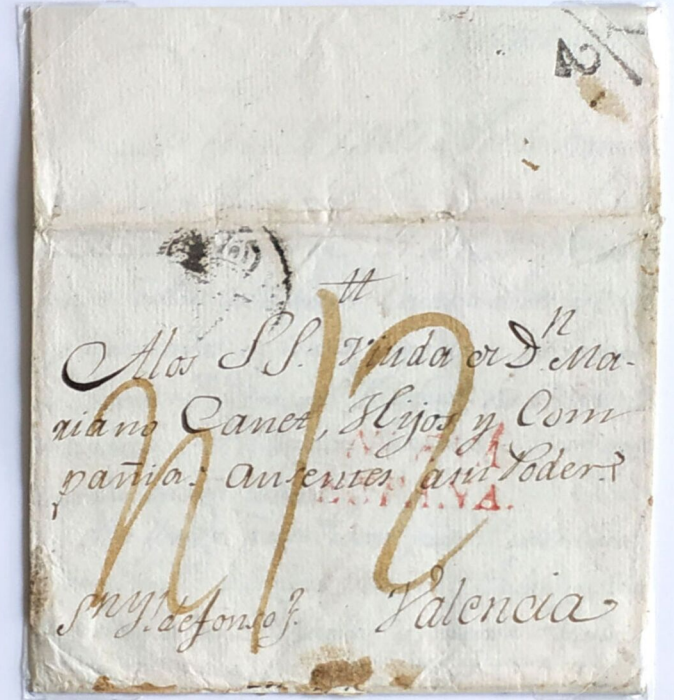 2
tt
Alos SS. Viuda de Dn. Ma-
riano Canet, Hijos y Com
pañia: ausentes asu Poder.
ESPAÑA.
Sn Yldefonso J. Valencia